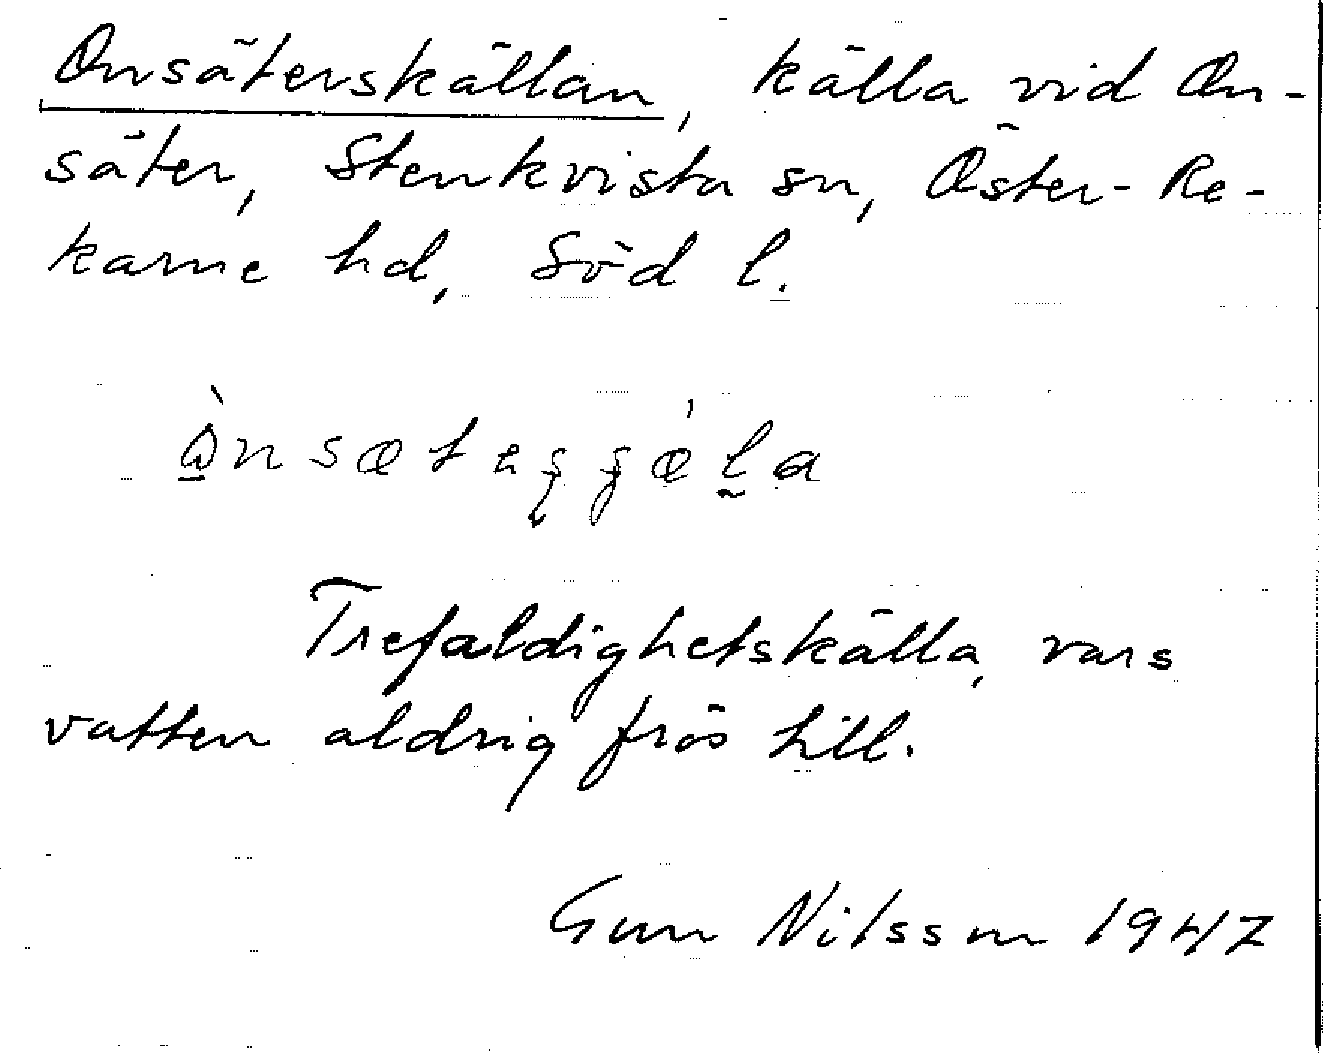 Onsäterskällan, källa vid On-
säter, Stenkvista sn, Öster-Re-
karne hd, Söd l.
Trefaldighetskälla, vars
vatten aldrig frös till.
Gun Nilsson 1947